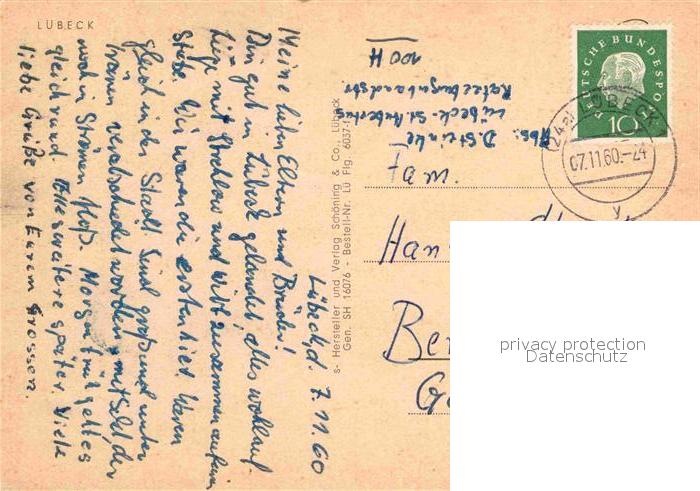 LÜBECK
Lübeck, d. 7.11.60
Meine lieben Eltern und Brüder!
Bin gut in Lübeck gelandet, alles wohlauf.
Liege mit und zusammen auf einer
Stube. Wir waren die ersten hier. Waren
gleich in der Stadt. Sind groß und unter
Tränen verabschiedet worden, mit der
noch in Strömen floß. Morgen früh geht es
gleich rund. Alles weitere später. Viele
liebe Grüße von Eurem Grossen.
s- Hersteller und Verlag Schöning & Co., Lübeck
Gen. SH 16076 - Bestell-Nr. Lü Flg. 6037-1
Abs: D. Steinke
Lübeck-St. Hubertus
Ratzeburger Landstr.
100 H
DEUTSCHE BUNDESPOST
10
(24a) LÜBECK
07.11.60.-24
y
Fam.
Han
Ber
G
privacy protection
Datenschutz